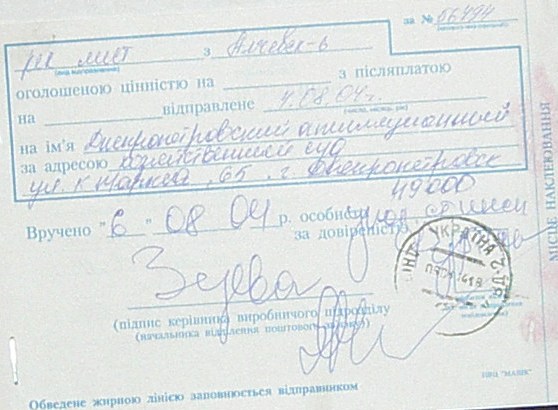 за № 66494
рек лист з Алчевск-6
(вид відправлення)
оголошеною цінністю на з післяплатою
на відправлене 4.08.04г.
(число, місяць, рік)
на ім'я Днепропетровский апелляционный
за адресою хозяйственный суд
ул. к Маркса, 65, г. Днепропетровск
49600
Вручено "6" 08 04 р. особисто
за довіреністю
УКРАЇНА
Зуева
(підпис керівника виробничого підрозділу
(начальника відділення поштового зв'язку)
Обведене жирною лінією заповнюється відправником
МІСЦЕ НАКЛЕЮВАННЯ